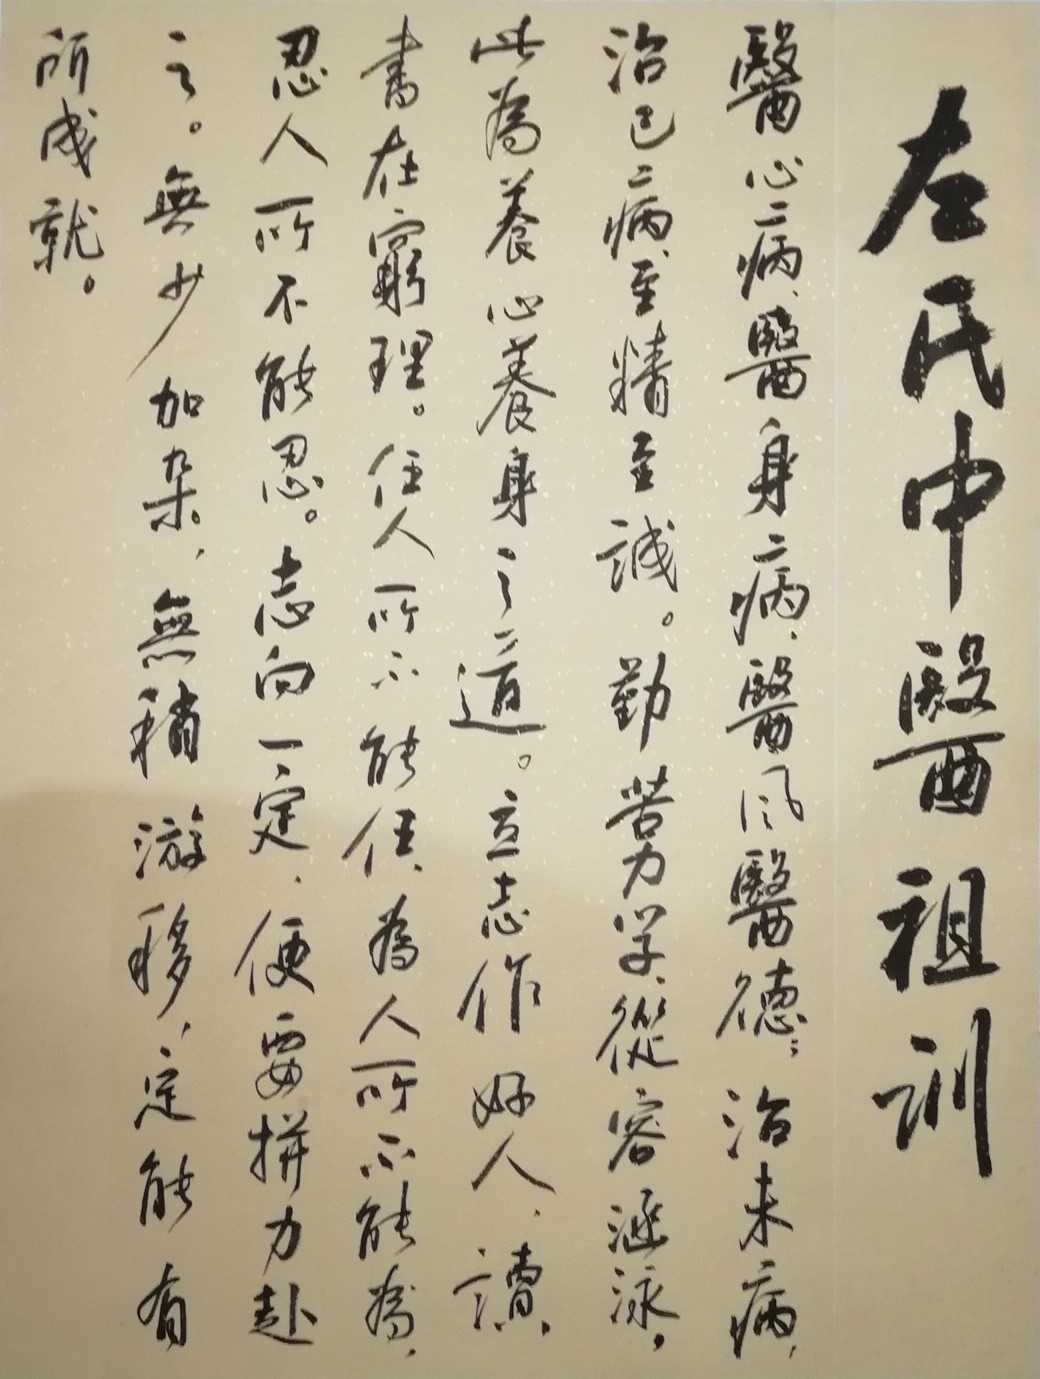 左氏中醫祖訓
醫心病、醫身病、醫風醫德；治未病，
治已病、至精至誠。勤苦力学、從容涵泳。
此為養心養身之道。立志作好人、讀
書在窮理。任人所不能任、為人所不能為、
忍人所不能忍。志向一定、便要拼力赴
之。無少加杂、無稍游移、定能有
所成就。